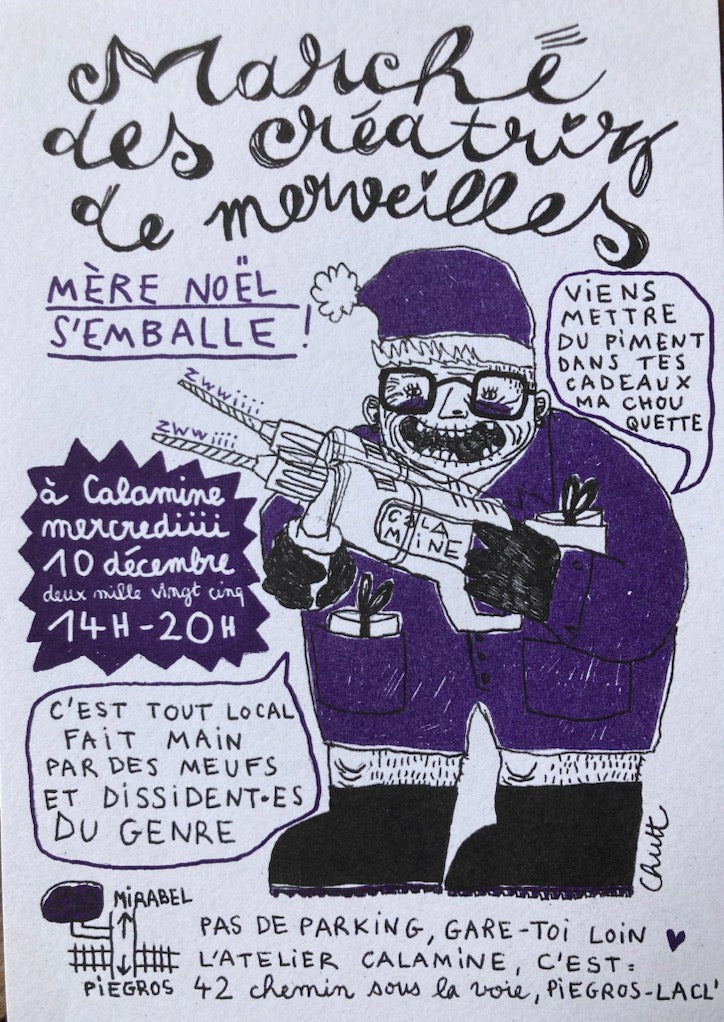 Marché
des créatriz
de merveilles
MÈRE NOËL
S'EMBALLE !
VIENS
METTRE
DU PIMENT
DANS TES
CADEAUX
MA CHOU
QUETTE
ZWWiiii
ZWWiiii
CALA
MINE
à Calamine
mercrediiii
10 décembre
deux mille vingt cinq
14H-20H
C'EST TOUT LOCAL
FAIT MAIN
PAR DES MEUFS
ET DISSIDENT·ES
DU GENRE
Chutt
MIRABEL
PIEGROS
PAS DE PARKING, GARE-TOI LOIN
L'ATELIER CALAMINE, C'EST:
42 chemin sous la voie, PIEGROS-LACL'